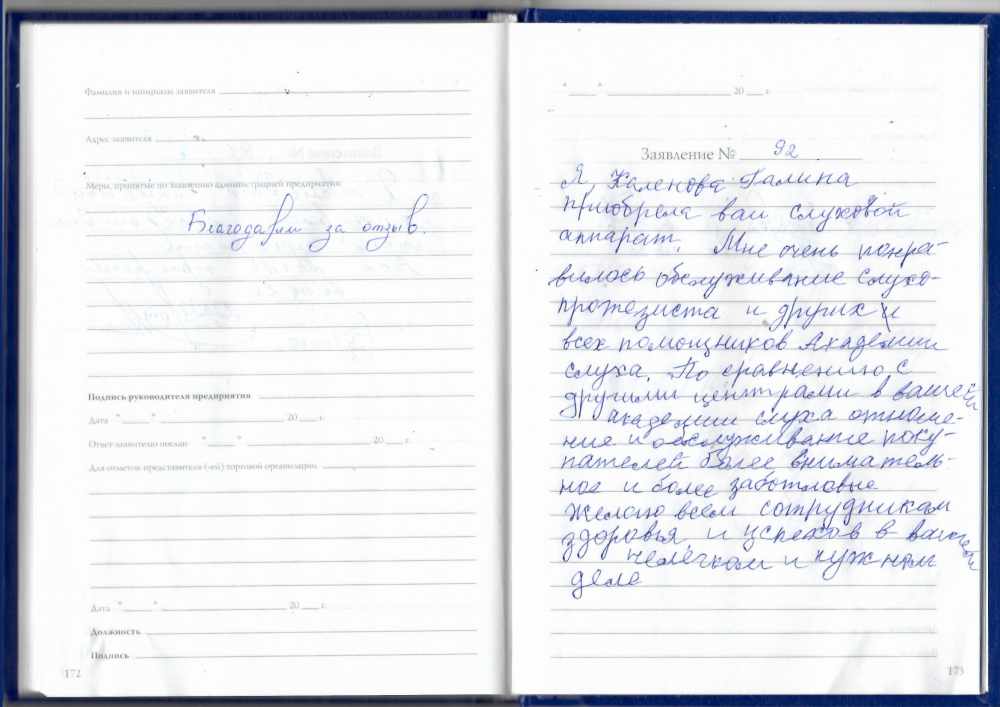 Фамилия и инициалы заявителя
Адрес заявителя
Меры, принятые по заявлению администрацией предприятия:
Благодарим за отзыв.
Подпись руководителя предприятия
Дата "____" ____ 20 __ г.
Ответ заявителю послан "____" ____ 20 __ г.
Для отметок представителя (-ей) торговой организации
Дата "____" ____ 20 __ г.
Должность
Подпись
172
"____" ____ 20 __ г.
Заявление № 92
Я, Каленова Галина
приобрела ваш слуховой
аппарат. Мне очень понра-
вилось обслуживание слухо-
протезиста и других и
всех помощников Академии
слуха. По сравнению с
другими центрами в вашей
академии слуха отноше-
ние и обслуживание поку-
пателей более вниматель-
ное и более заботловые
Желаю всем сотрудникам
здоровья и успехов в вашем
нелегком и нужном
деле
173